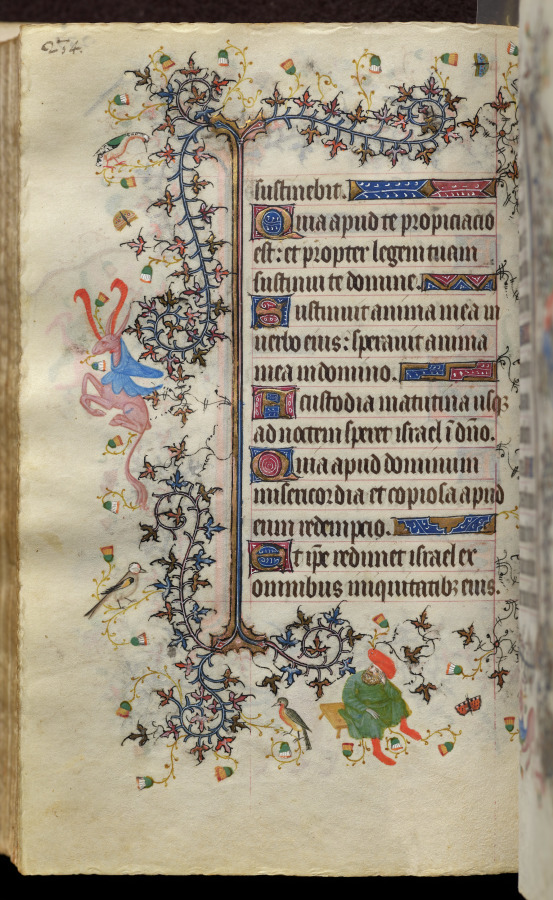 254.
sustinebit.
Quia apud te propiciacio
est: et propter legem tuam
sustinui te domine.
Sustinuit anima mea in
uerbo eius: sperauit anima
mea in domino.
A custodia matutina usq3
ad noctem speret israel ī dn̄o.
Quia apud dominum
misericordia et copiosa apud
eum redempcio.
Et ip̄e redimet israel ex
omnibus iniquitatib3 eius.